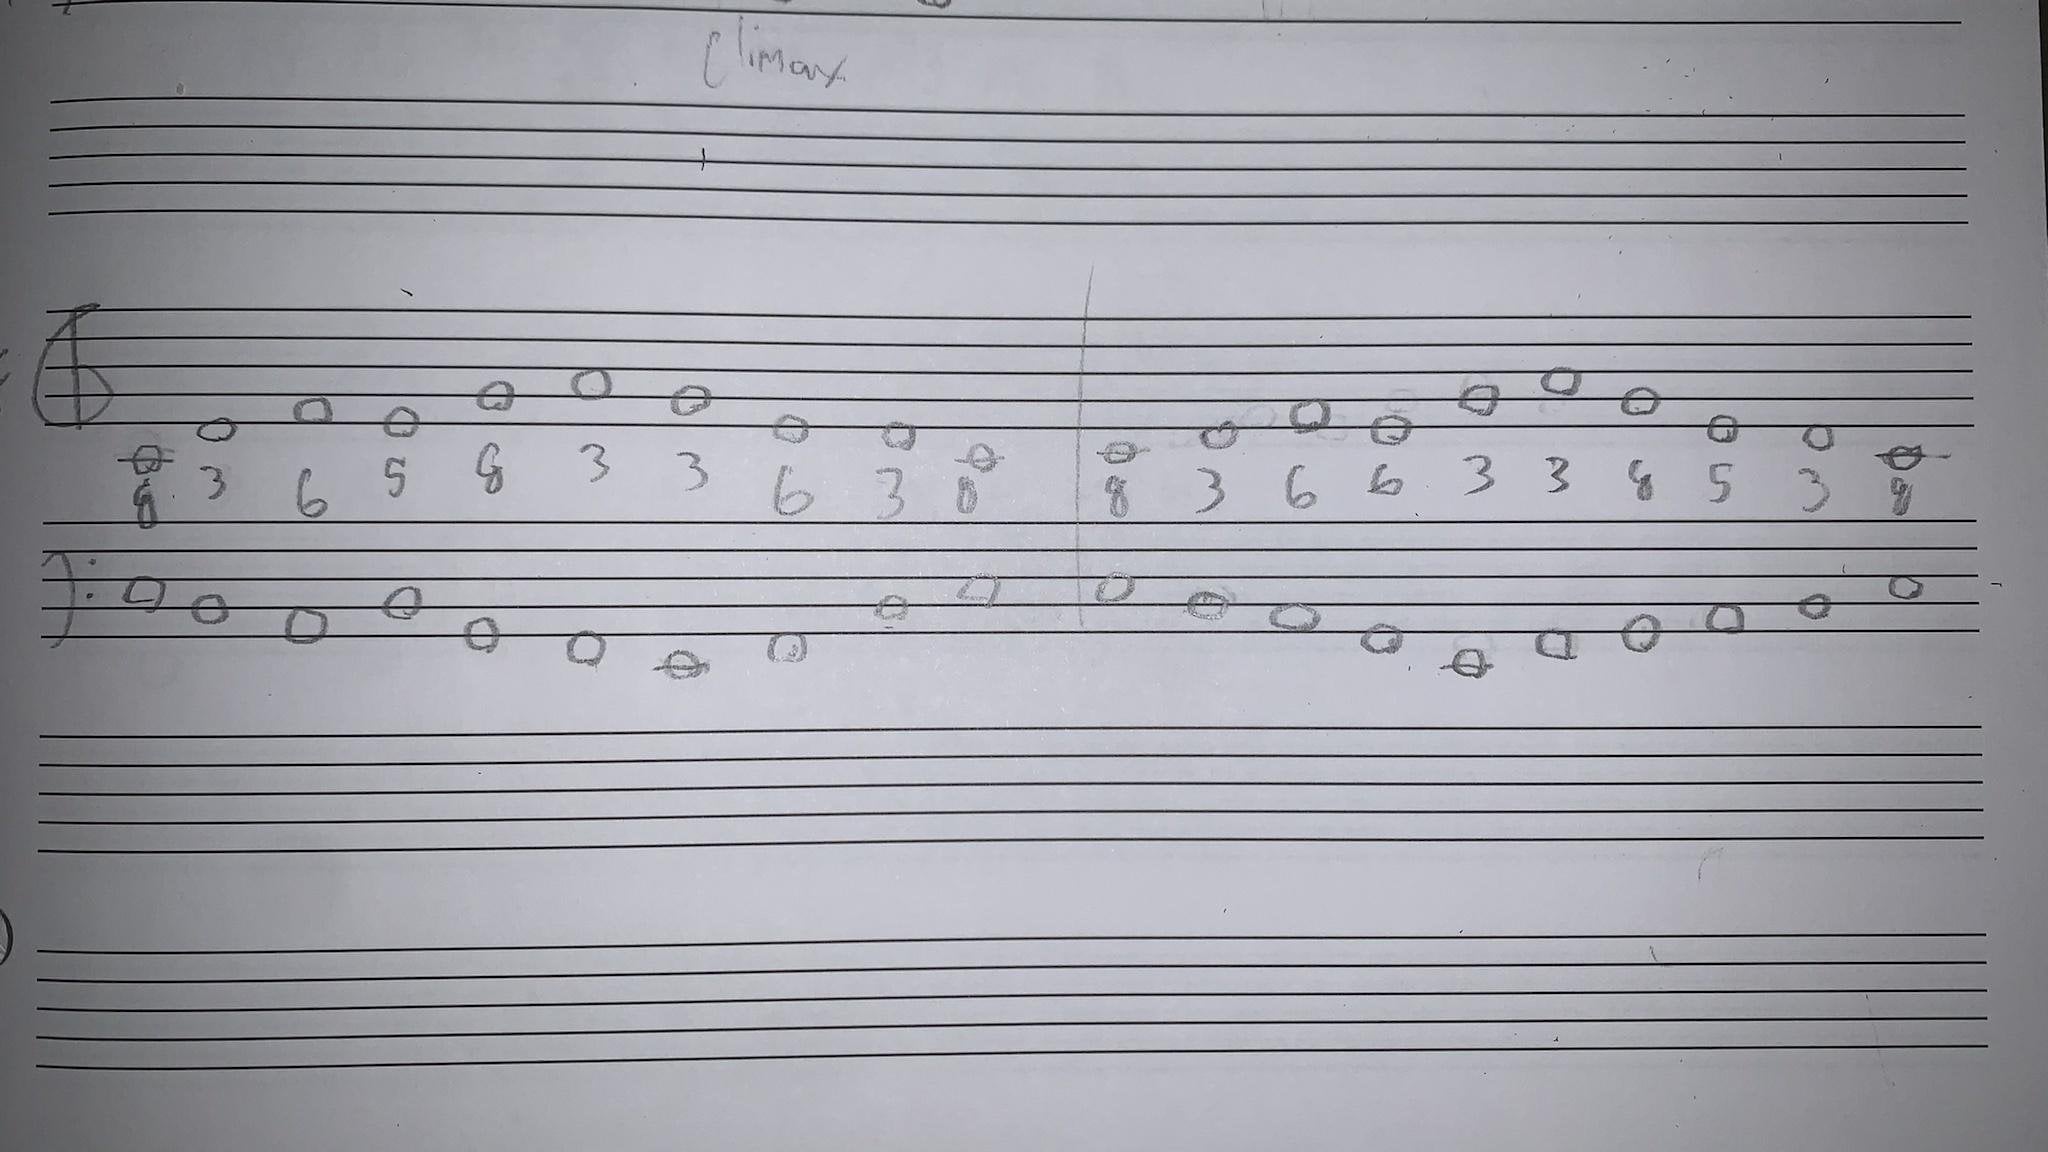 Climax
8 3 6 5 8 3 3 6 3 8 8 3 6 6 3 3 8 5 3 8